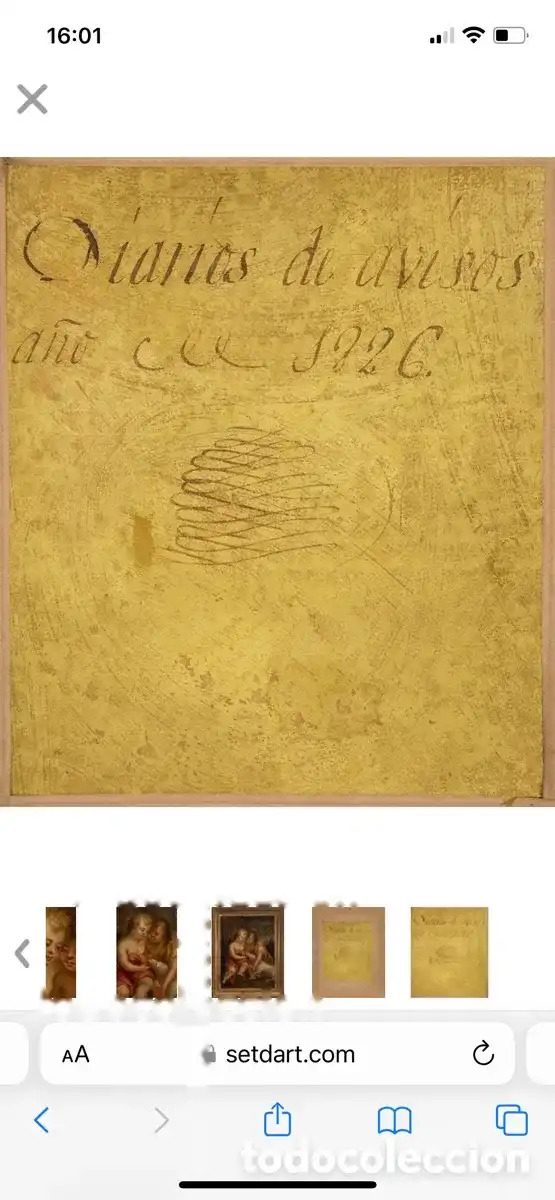 16:01
Diarios de avisos
año 1826.
AA
setdart.com
todocoleccion